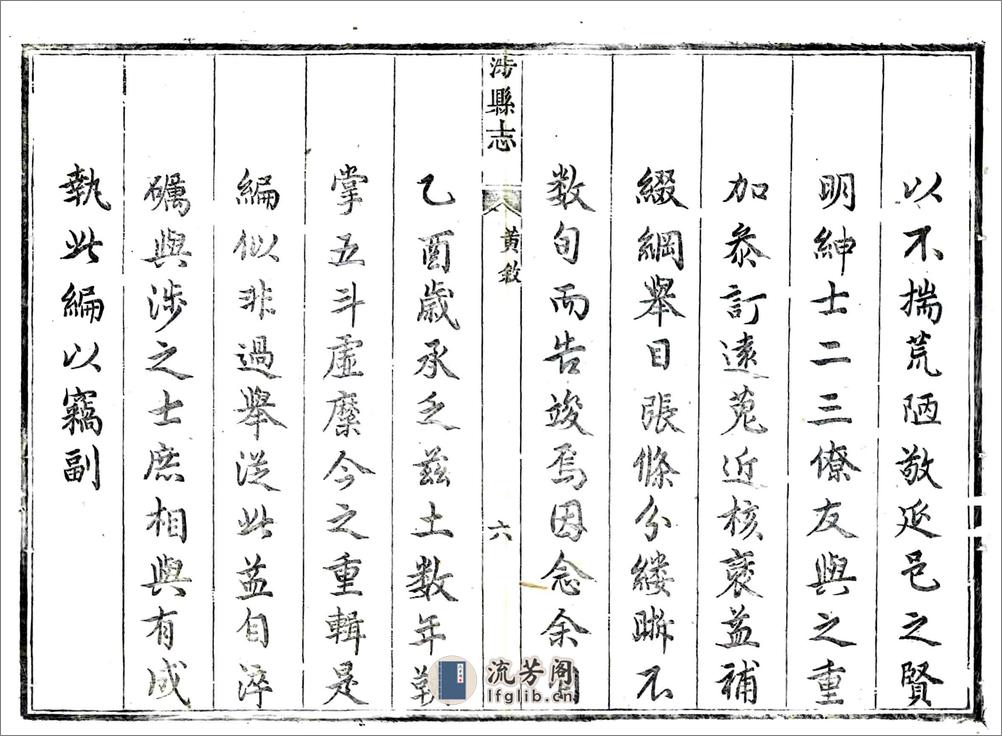 以不揣荒陋敬延邑之賢
明紳士二三僚友與之重
加叅訂遠蒐近核裒益補
綴綱舉目張條分縷晰不
数旬而告竣焉因念余自
涉縣志
黃敘
六
乙酉歲承乏茲土数年鞅
掌五斗虛縻今之重輯是
編似非過舉從此益自淬
礪與涉之士庶相與有成
執此編以竊副
流芳阁
lfglib.cn